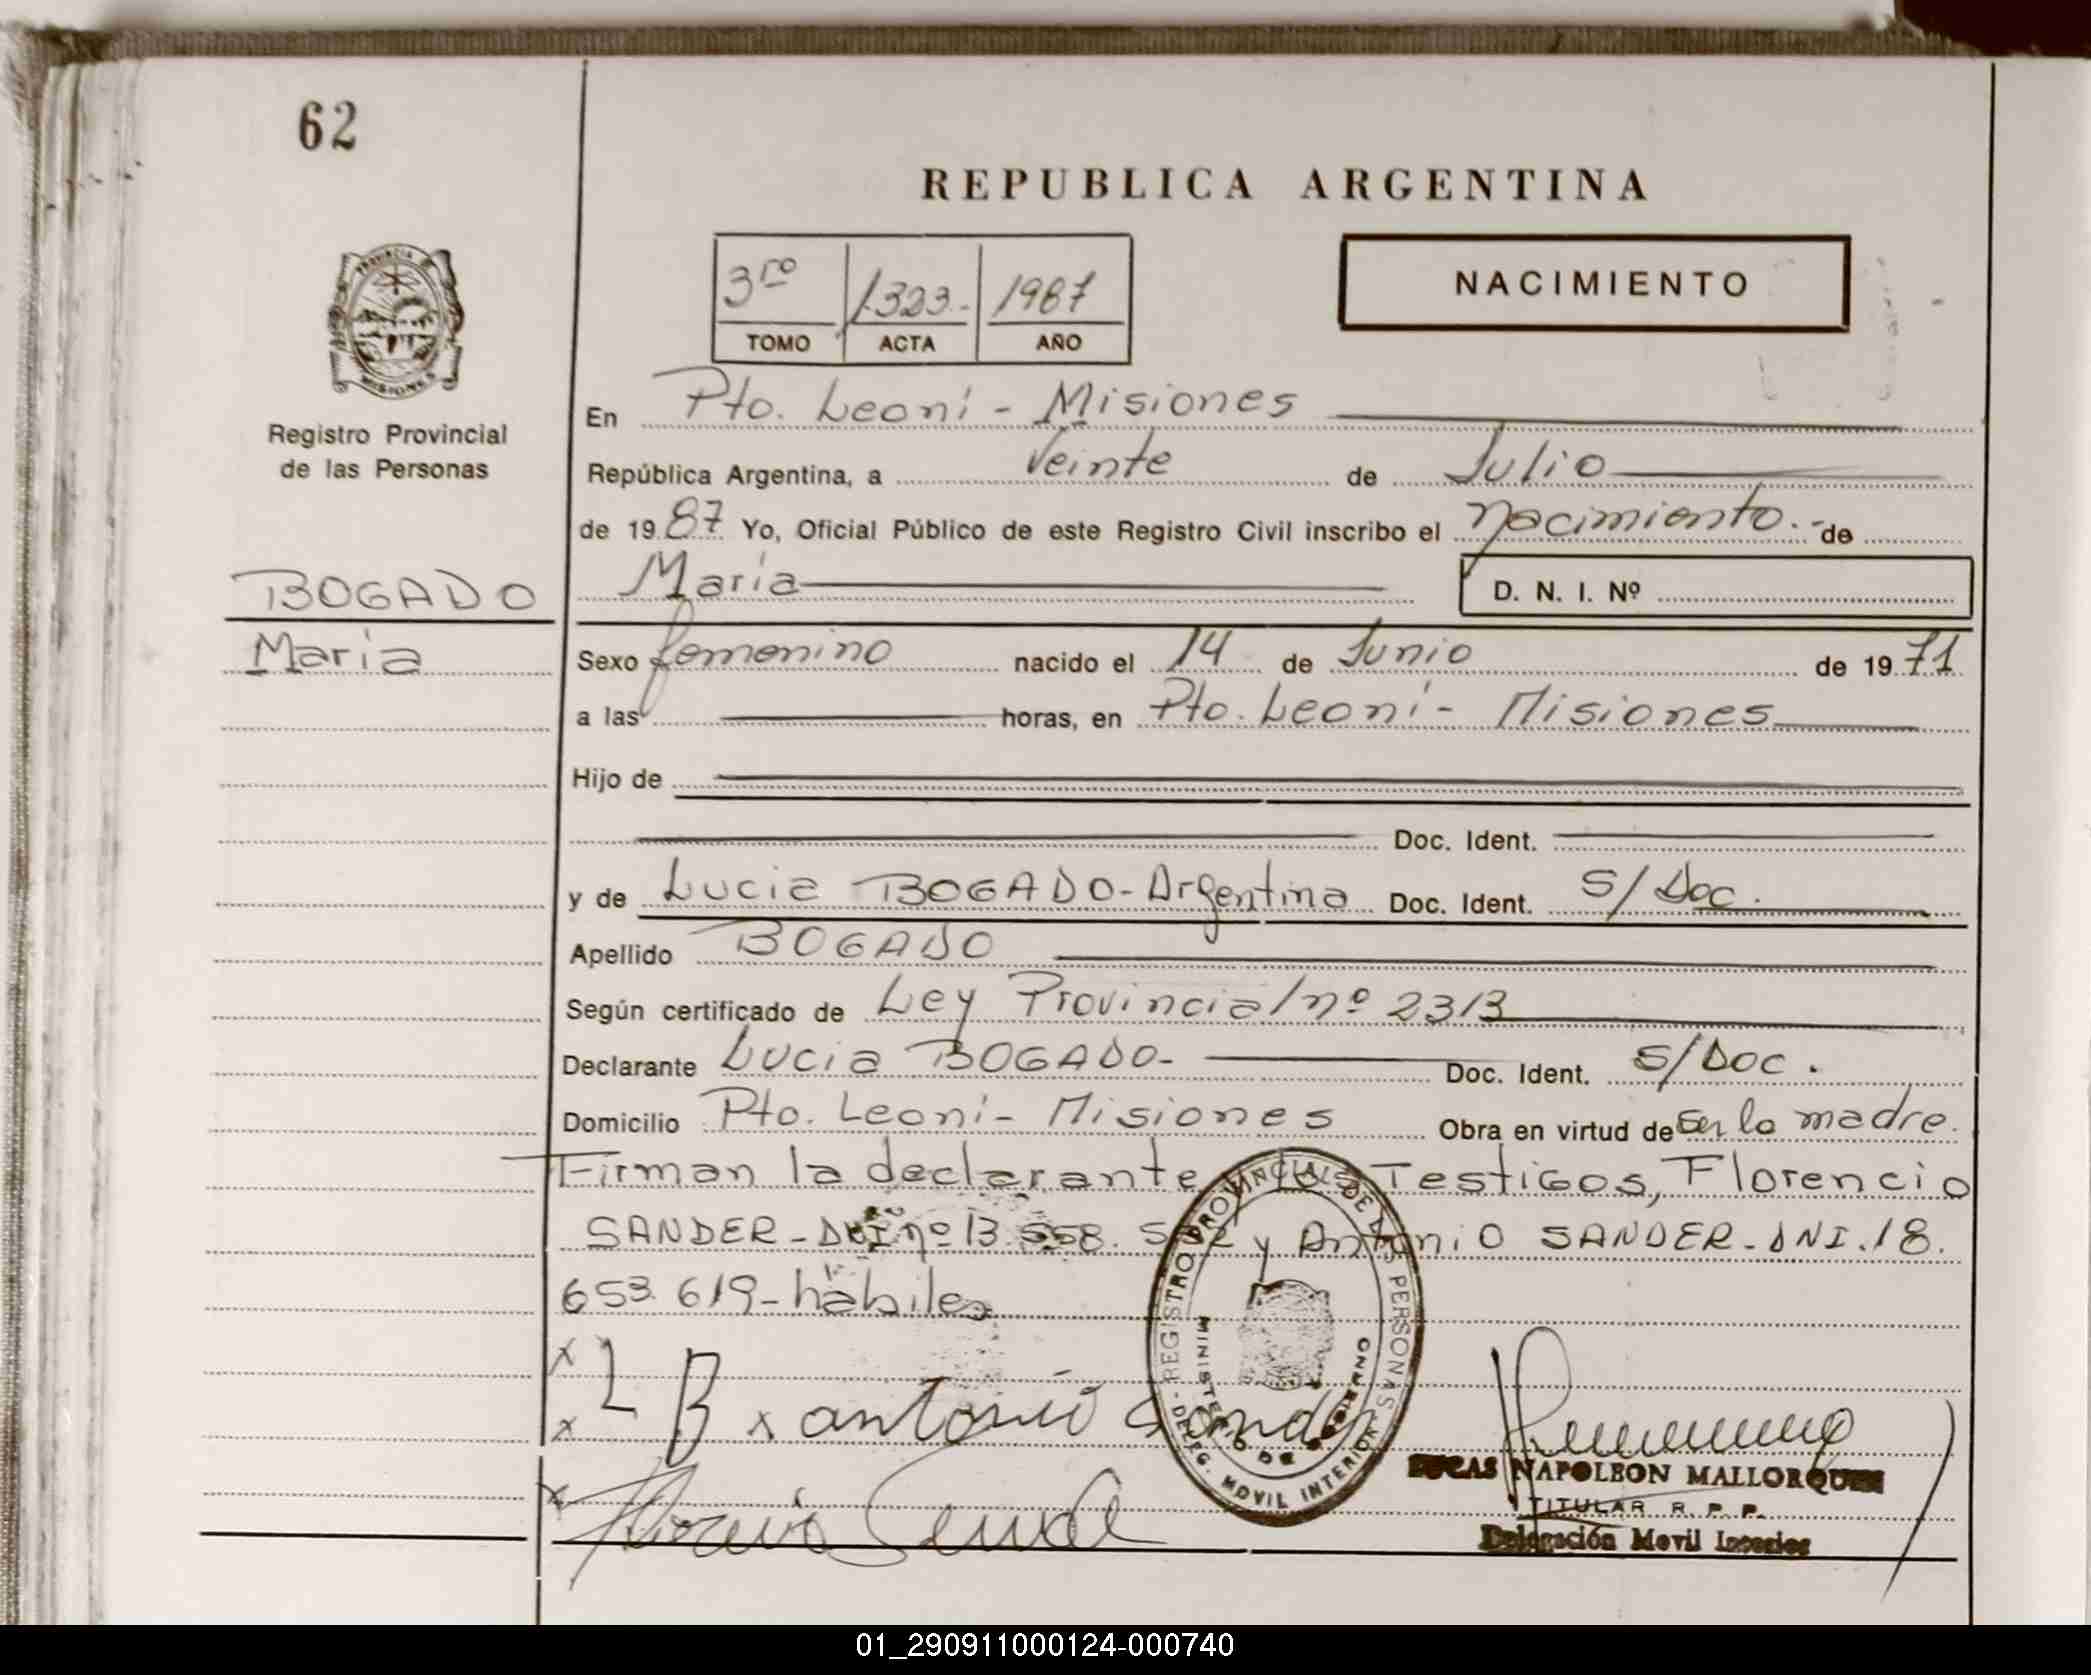 62
REPUBLICA ARGENTINA
NACIMIENTO
3ro 1323.- 1987
TOMO ACTA AÑO
PROVINCIA DE MISIONES
Registro Provincial
de las Personas
En Pto. Leoni - Misiones
República Argentina, a Veinte de Julio
de 1987 Yo, Oficial Público de este Registro Civil inscribo el nacimiento.- de
BOGADO
María
María
D. N. I. Nº
Sexo femenino nacido el 14 de Junio de 1971
a las horas, en Pto. Leoni - Misiones
Hijo de
Doc. Ident.
y de Lucia BOGADO - Argentina Doc. Ident. S/Doc.
Apellido BOGADO
Según certificado de Ley Provincial nº 2313
Declarante Lucia BOGADO - Doc. Ident. S/Doc.
Domicilio Pto. Leoni - Misiones Obra en virtud de ser la madre.
Firman la declarante Testigos, Florencio
SANDER - DNI nº 13.558. y Antonio SANDER - DNI. 18.
653.619 - hábiles
x L B x antonio
x
x
REGISTRO PROVINCIAL DE LAS PERSONAS
MINISTERIO DE GOBIERNO
DELEG. MOVIL INTERIOR
LUCAS NAPOLEON MALLORQUIN
TITULAR R. P. P.
Delegación Movil Interior
01_290911000124-000740